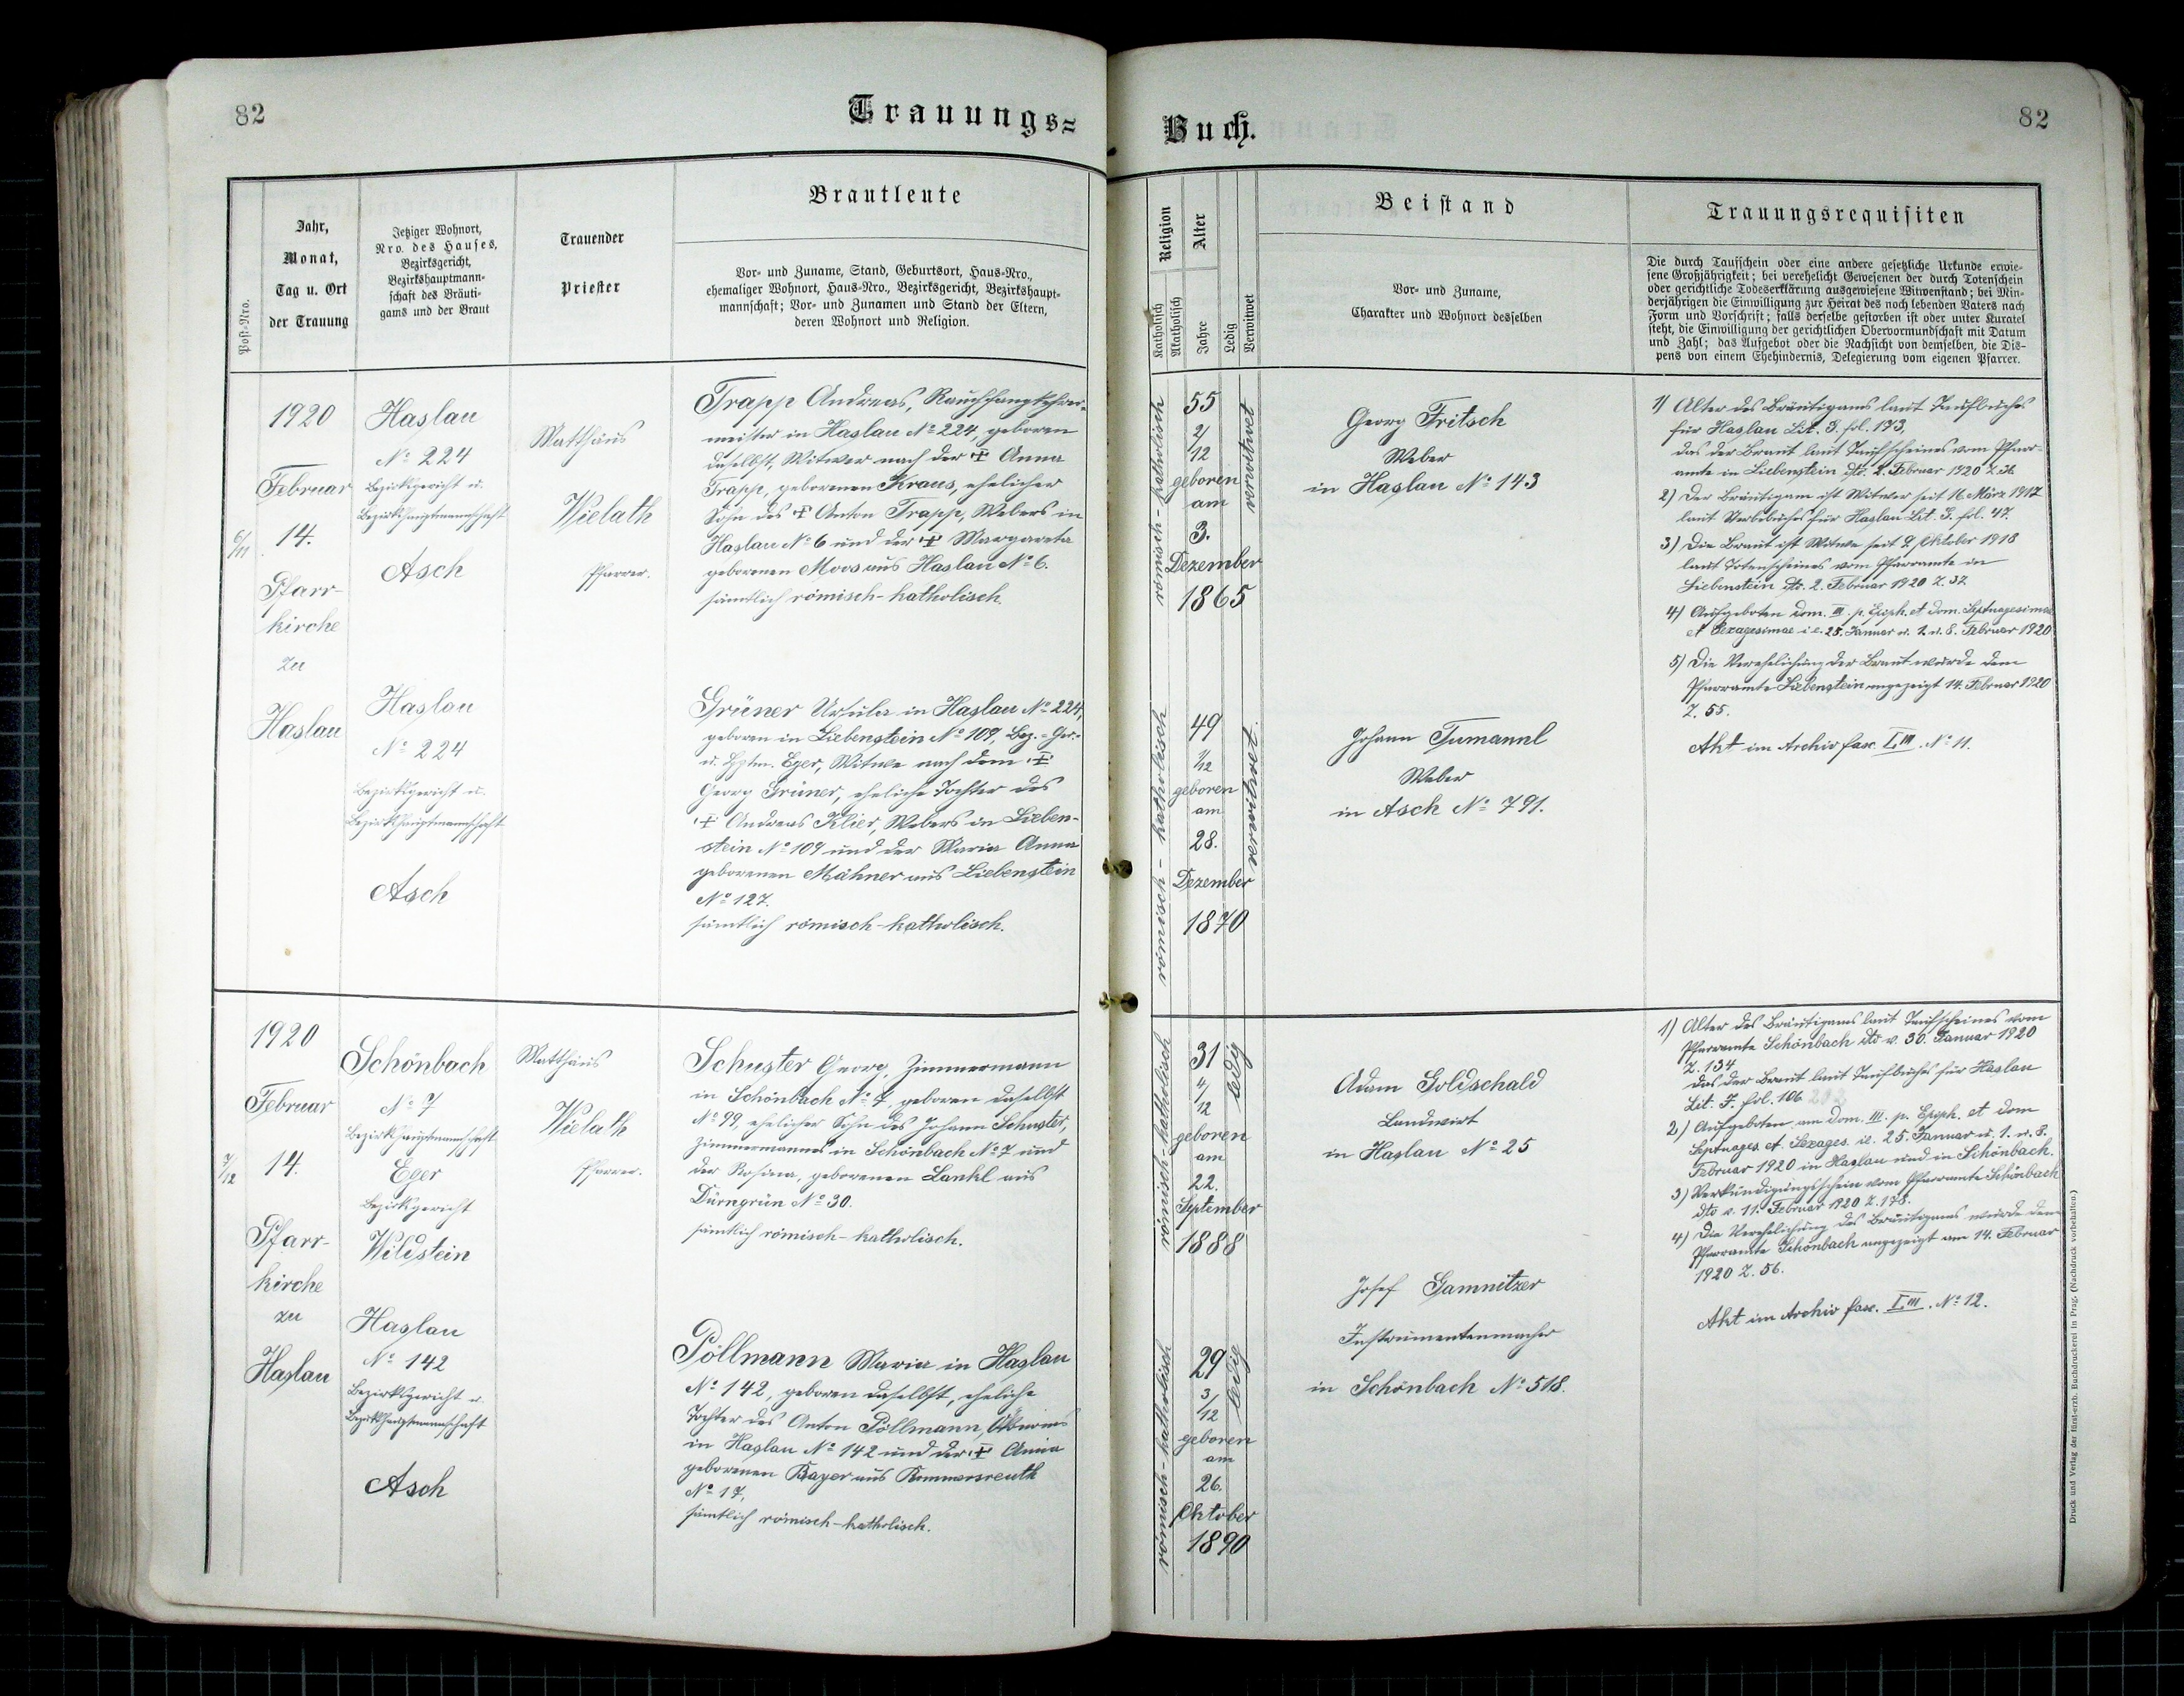 82
Trauungs=
Jahr,
Monat,
Tag u. Ort
der Trauung
Post-Nro.
Jetziger Wohnort,
Nro. des Hauses,
Bezirksgericht,
Bezirkshauptmann-
schaft des Bräuti-
gams und der Braut
Trauender
Priester
Brautleute
Vor- und Zuname, Stand, Geburtsort, Haus-Nro.,
ehemaliger Wohnort, Haus-Nro., Bezirksgericht, Bezirkshaupt-
mannschaft; Vor- und Zunamen und Stand der Eltern,
deren Wohnort und Religion.
6/11
1920
Februar
14.
Pfarr-
kirche
zu
Haslau
Haslau
No 224
Bezirksgericht u.
Bezirkshauptmannschaft
Asch
Matthäus
Wielath
Pfarrer.
Trapp Andreas, Rauchfangkehrer-
meister in Haslau No 224, geboren
daselbst, Witwer nach der ✠ Anna
Trapp, geborenen Kraus, ehelicher
Sohn des ✠ Anton Trapp, Webers in
Haslau No 6 und der ✠ Margareta
geborenen Moos aus Haslau No 6.
sämtlich römisch-katholisch.
Haslau
No 224
Bezirksgericht u.
Bezirkshauptmannschaft
Asch
Grüner Ursula in Haslau No 224,
geboren in Liebenstein No 109, Bez.-Ger.-
u. Hptm. Eger, Witwe nach dem ✠
Georg Grüner, eheliche Tochter des
✠ Andreas Klier, Webers in Lieben-
stein No 109 und der Maria Anna
geborenen Mähner aus Liebenstein
No 127.
sämtlich römisch-katholisch.
7/12
1920
Februar
14.
Pfarr-
kirche
zu
Haslau
Schönbach
No 7
Bezirkshauptmannschaft
Eger
Bezirksgericht
Wildstein
Matthäus
Wielath
Pfarrer.
Schuster Georg, Zimmermann
in Schönbach No 7, geboren daselbst
No 99, ehelicher Sohn des Johann Schuster,
Zimmermannes in Schönbach No 7 und
der Rosina, geborenen Lankl aus
Dürngrün No 30.
sämtlich römisch-katholisch.
Haslau
No 142
Bezirksgericht u.
Bezirkshauptmannschaft
Asch
Pöllmann Maria in Haslau
No 142, geboren daselbst, eheliche
Tochter des Anton Pöllmann,
in Haslau No 142 und der ✠ Anna
geborenen Bayer aus Rommersreuth
No 17,
sämtlich römisch-katholisch.
Buch.
82
Religion
Katholisch
Akatholisch
Alter
Jahre
Ledig
Verwitwet
Beistand
Vor- und Zuname,
Charakter und Wohnort desselben
Trauungsrequisiten
Die durch Taufschein oder eine andere gesetzliche Urkunde erwie-
sene Großjährigkeit; bei verehelicht Gewesenen der durch Totenschein
oder gerichtliche Todeserklärung ausgewiesene Witwenstand; bei Min-
derjährigen die Einwilligung zur Heirat des noch lebenden Vaters nach
Form und Vorschrift; falls derselbe gestorben ist oder unter Kuratel
steht, die Einwilligung der gerichtlichen Obervormundschaft mit Datum
und Zahl; das Aufgebot oder die Nachsicht von demselben, die Dis-
pens von einem Ehehindernis, Delegierung vom eigenen Pfarrer.
römisch-katholisch
55
2/
12
geboren
am
3.
Dezember
1865
verwitwet
Georg Fritsch
Weber
in Haslau No 143
1) Alter des Bräutigams laut Taufbuches
für Haslau Lit. J. fol. 173.
das der Braut laut Taufscheines vom Pfarr-
amte in Liebenstein dto. 2. Februar 1920 Z. 36.
2) Der Bräutigam ist Witwer seit 16. März 1917
laut Sterbebuches für Haslau Lit. J. fol. 47.
3) Die Braut ist Witwe seit 9. Oktober 1918
laut Totenscheines vom Pfarramte in
Liebenstein dto. 2. Februar 1920 Z. 37.
4) Aufgeboten dom. III. p. Epiph. et dom. Septuagesimae
et Sexagesimae i. e. 25. Januar u. 1. u. 8. Februar 1920
5) Die Verehelichung der Braut wurde dem
Pfarramte Liebenstein angezeigt 14. Februar 1920
Z. 55.
Akt im Archiv fasc. I.III. No 11.
römisch-katholisch
49
1/12
geboren
am
28.
Dezember
1870
verwitwet.
Johann Tumannl
Weber
in Asch No 791.
römisch-katholisch
31
4/
12
geboren
am
22.
September
1888
ledig
Adam Goldschald
Landwirt
in Haslau No 25
1) Alter des Bräutigams laut Taufscheines vom
Pfarramte Schönbach dto v. 30. Januar 1920
Z. 134
das der Braut laut Taufbuches für Haslau
Lit. J. fol. 106
2) Aufgeboten am dom. III. p. Epiph. et dom
Septuages. et Sexages. ie. 25. Januar u. 1. u. 8.
Februar 1920 in Haslau und in Schönbach.
3) Verkündigungsschein vom Pfarramte Schönbach
dto v. 11. Februar 1920 Z. 178.
4) Die Verehelichung des Bräutigams wurde dem
Pfarramte Schönbach angezeigt am 14. Februar
1920 Z. 56.
Akt im Archiv fasc. I.III. No 12.
römisch-katholisch
29
3/
12
geboren
am
26.
Oktober
1890
ledig
Josef Gamnitzer
Instrumentenmacher
in Schönbach No 518.
Druck und Verlag der fürst-erzb. Buchdruckerei in Prag. (Nachdruck vorbehalten.)